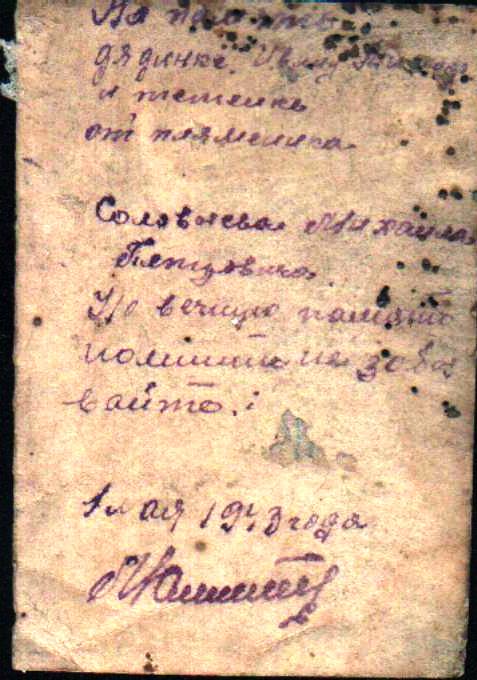 На память
дядинке
и тетеньке
от племеника
Соловьева Михаила
Петровича
На вечную память
помнити не забы
вайте.!
1 мая 1943 года